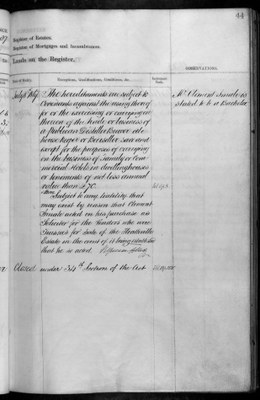 44
Register of Estates.
Register of Mortgages and Incumbrances.
Lands on the Register.
OBSERVATIONS.
Date of Entry.
Exceptions, Qualifications, Conditions, &c.
The hereditaments are subject to
Covenants against the using thereof
for or the exercising or carrying on
thereon of the trade or business of
a Publican Distiller Brewer ale
house keeper or Beerseller save and
except for the purposes of carrying
on the business of Family or Com-
mercial Hotels in dwellinghouses
or tenements of not less annual
value than £70.
Subject to any liability that
may exist by reason that Clement
Smale acted on his purchase as
Solicitor for the Vendors who were
Trustees for Sale of the
Estate in the event of it being established
that he so acted.
Closed under 34th Section of the Act
Mr Clement Smale is
stated to be a Bachelor